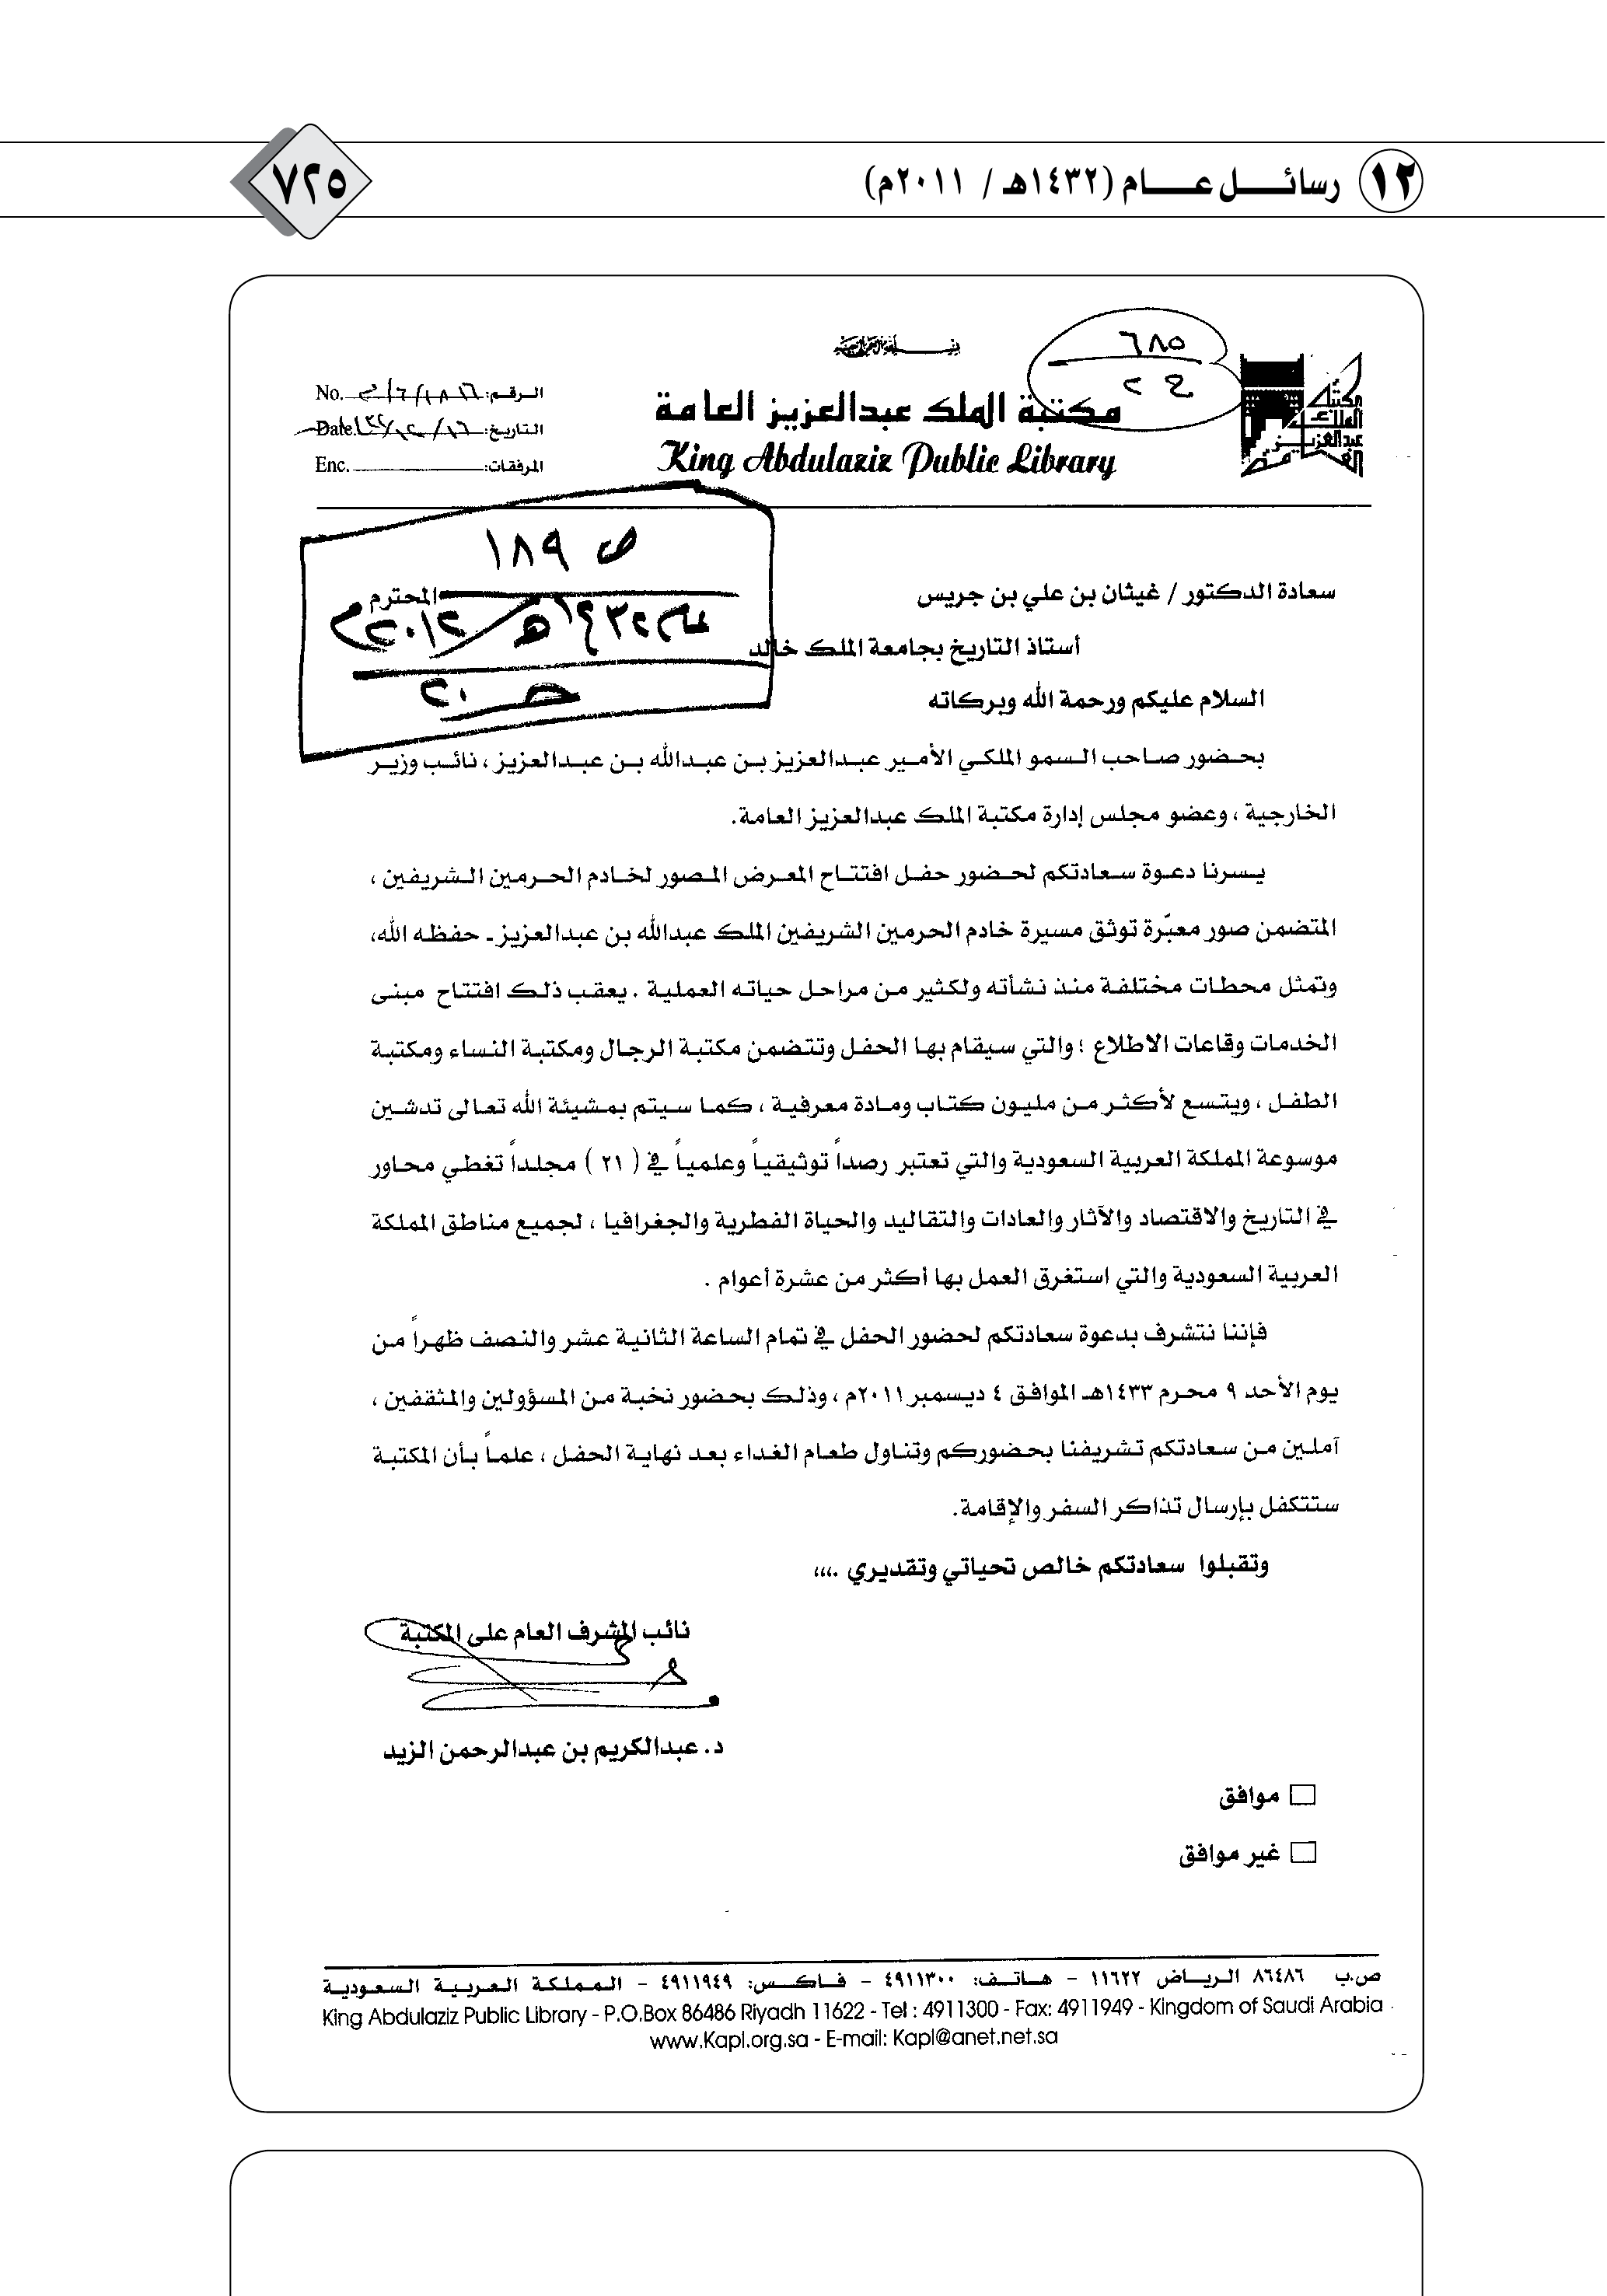 ١٢ رسائل عام (١٤٣٢هـ / ٢٠١١م)
٧٢٥
٦٨٥
مكتبة الملك عبدالعزيز العامة
King Abdulaziz Public Library
الرقم: No.
التاريخ: Date
المرفقات: Enc.
ص ١٨٩
سعادة الدكتور / غيثان بن علي بن جريس المحترم
أستاذ التاريخ بجامعة الملك خالد
السلام عليكم ورحمة الله وبركاته
بحضور صاحب السمو الملكي الأمير عبدالعزيز بن عبدالله بن عبدالعزيز ، نائب وزير
الخارجية ، وعضو مجلس إدارة مكتبة الملك عبدالعزيز العامة.
يسرنا دعوة سعادتكم لحضور حفل افتتاح المعرض المصور لخادم الحرمين الشريفين ،
المتضمن صور معبّرة توثق مسيرة خادم الحرمين الشريفين الملك عبدالله بن عبدالعزيز ـ حفظه الله،
وتمثل محطات مختلفة منذ نشأته ولكثير من مراحل حياته العملية . يعقب ذلك افتتاح مبنى
الخدمات وقاعات الاطلاع ؛ والتي سيقام بها الحفل وتتضمن مكتبة الرجال ومكتبة النساء ومكتبة
الطفل ، ويتسع لأكثر من مليون كتاب ومادة معرفية ، كما سيتم بمشيئة الله تعالى تدشين
موسوعة المملكة العربية السعودية والتي تعتبر رصداً توثيقياً وعلمياً في ( ٢١ ) مجلداً تغطي محاور
في التاريخ والاقتصاد والآثار والعادات والتقاليد والحياة الفطرية والجغرافيا ، لجميع مناطق المملكة
العربية السعودية والتي استغرق العمل بها أكثر من عشرة أعوام .
فإننا نتشرف بدعوة سعادتكم لحضور الحفل في تمام الساعة الثانية عشر والنصف ظهراً من
يوم الأحد ٩ محرم ١٤٣٣هـ الموافق ٤ ديسمبر ٢٠١١م ، وذلك بحضور نخبة من المسؤولين والمثقفين ،
آملين من سعادتكم تشريفنا بحضوركم وتناول طعام الغداء بعد نهاية الحفل ، علماً بأن المكتبة
ستتكفل بإرسال تذاكر السفر والإقامة.
وتقبلوا سعادتكم خالص تحياتي وتقديري ،،،.
نائب المشرف العام على المكتبة
د. عبدالكريم بن عبدالرحمن الزيد
موافق
غير موافق
ص.ب ٨٦٤٨٦ الرياض ١١٦٢٢ - هاتف: ٤٩١١٣٠٠ - فاكس: ٤٩١١٩٤٩ - المملكة العربية السعودية
King Abdulaziz Public Library - P.O.Box 86486 Riyadh 11622 - Tel : 4911300 - Fax: 4911949 - Kingdom of Saudi Arabia
www.Kapl.org.sa - E-mail: Kapl@anet.net.sa